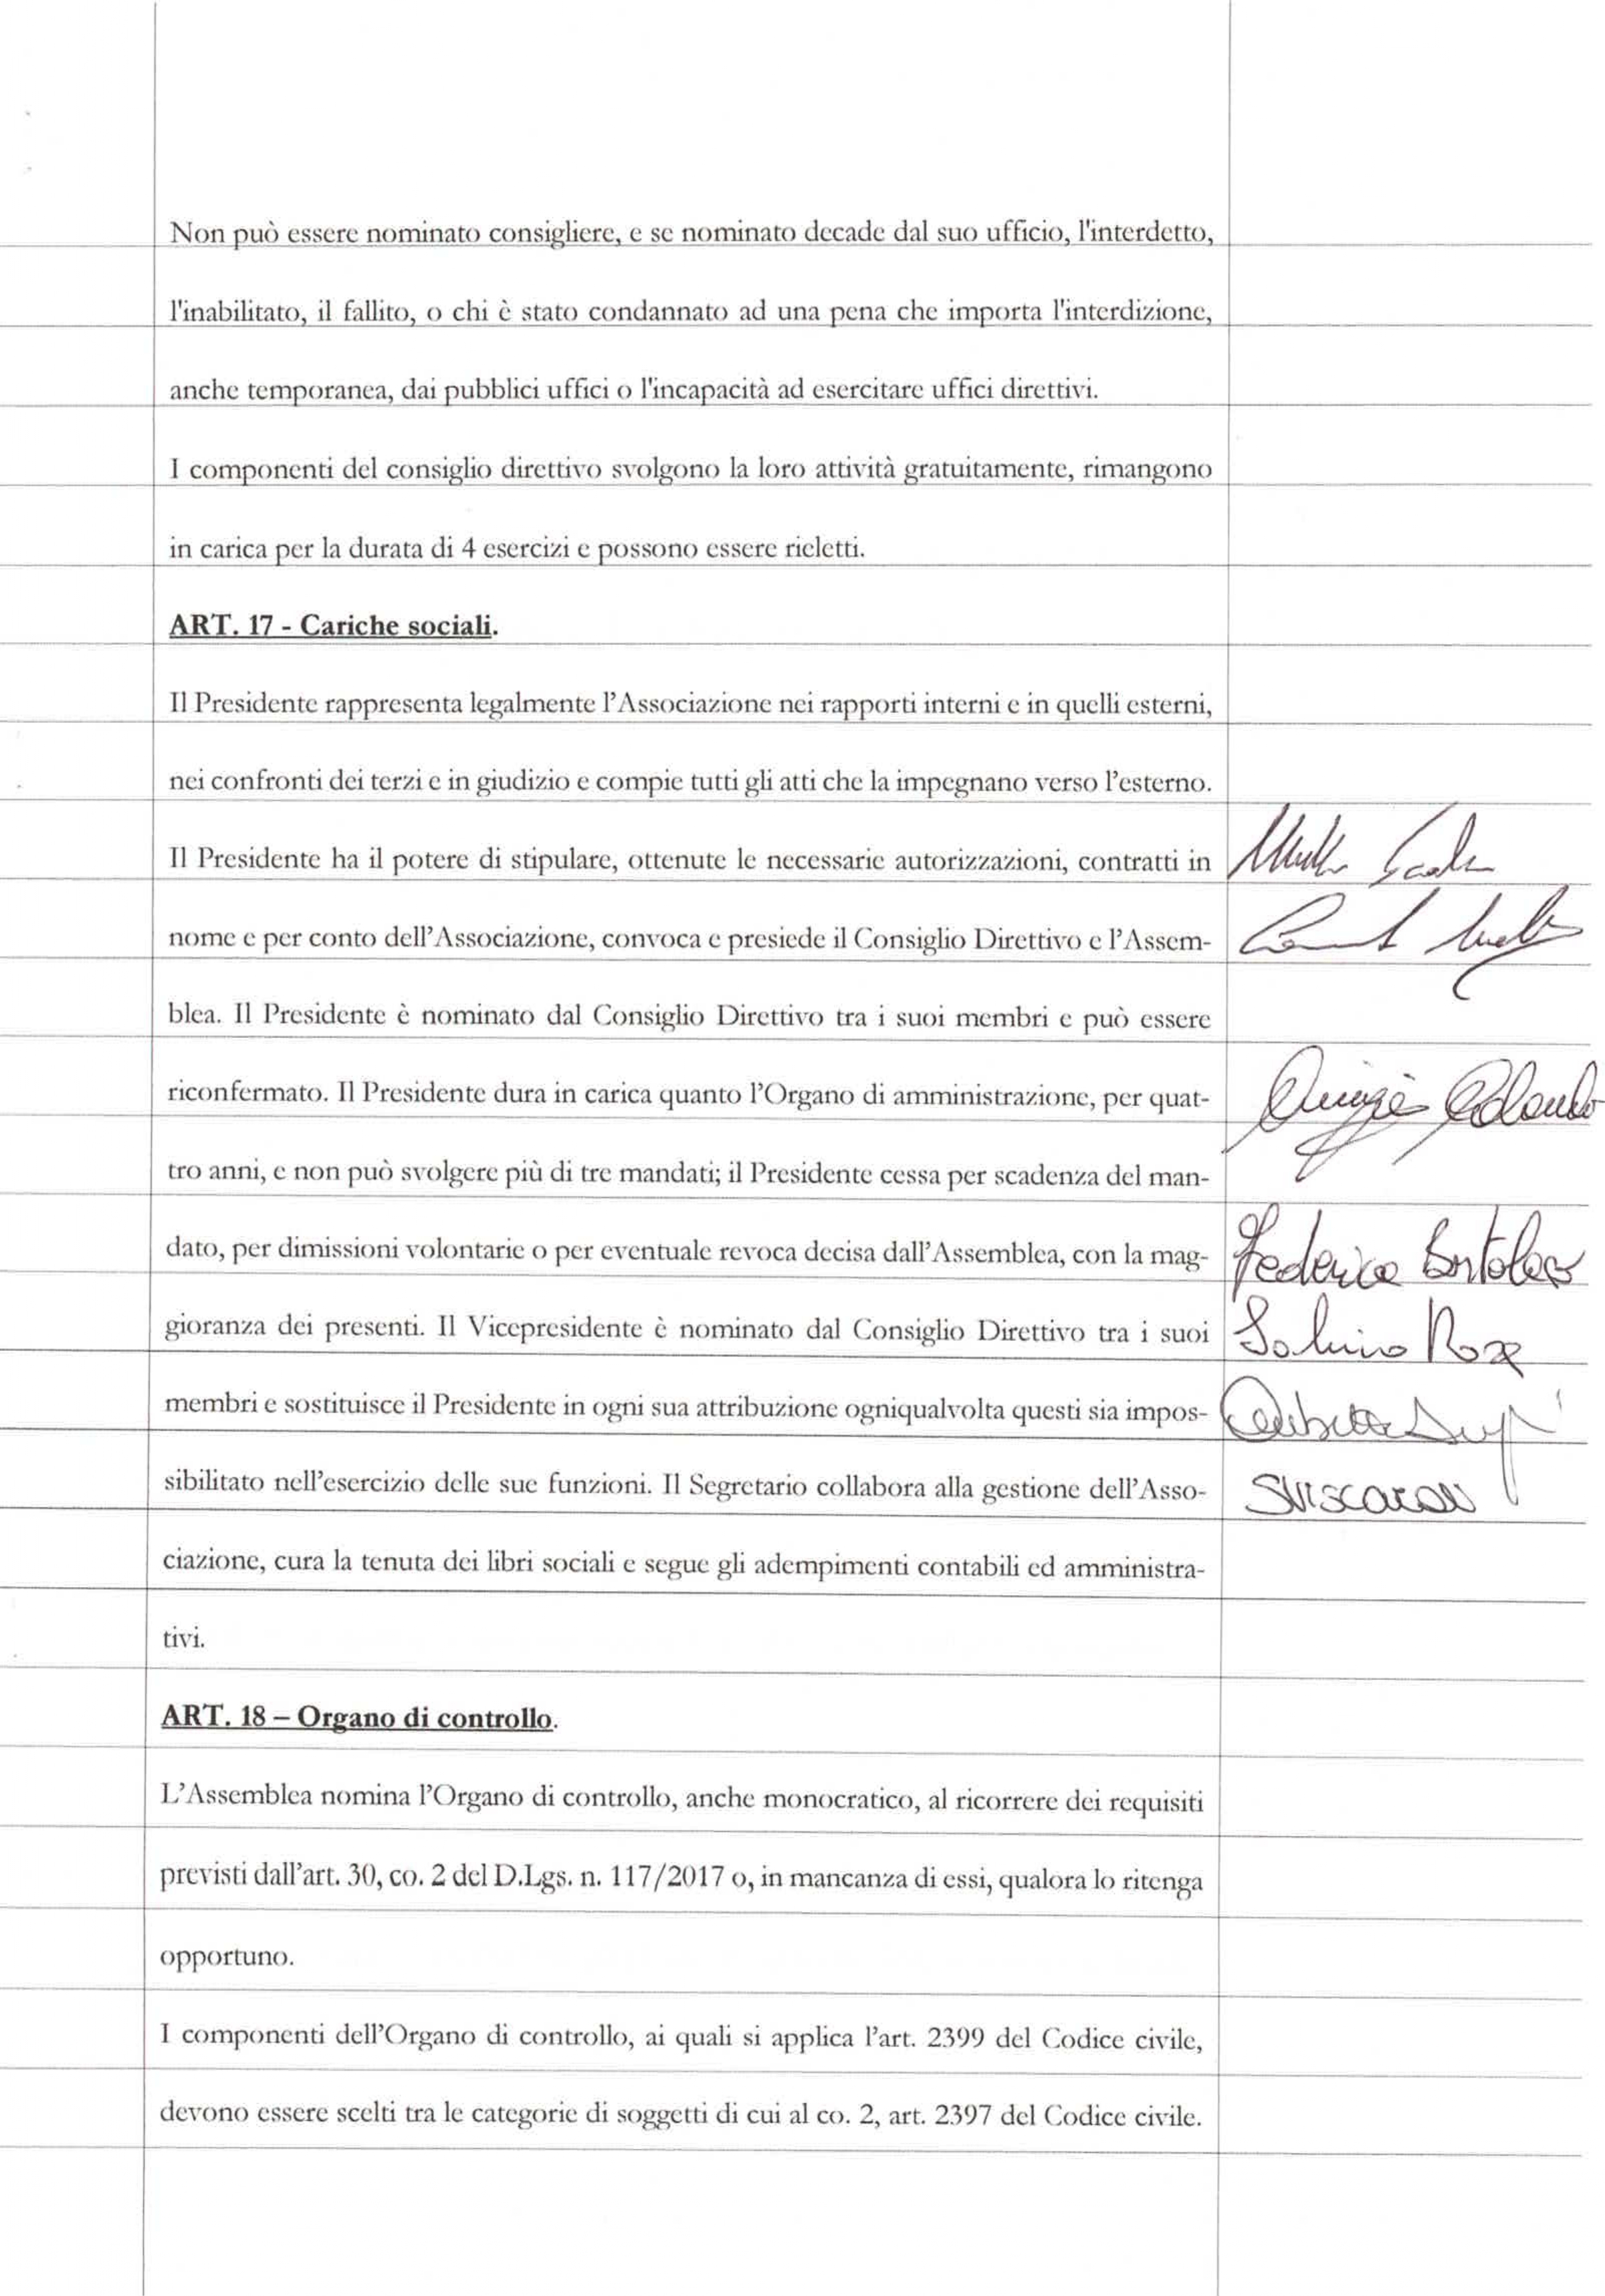 Non può essere nominato consigliere, e se nominato decade dal suo ufficio, l'interdetto,
l'inabilitato, il fallito, o chi è stato condannato ad una pena che importa l'interdizione,
anche temporanea, dai pubblici uffici o l'incapacità ad esercitare uffici direttivi.
I componenti del consiglio direttivo svolgono la loro attività gratuitamente, rimangono
in carica per la durata di 4 esercizi e possono essere rieletti.
ART. 17 - Cariche sociali.
Il Presidente rappresenta legalmente l'Associazione nei rapporti interni e in quelli esterni,
nei confronti dei terzi e in giudizio e compie tutti gli atti che la impegnano verso l'esterno.
Il Presidente ha il potere di stipulare, ottenute le necessarie autorizzazioni, contratti in
nome e per conto dell'Associazione, convoca e presiede il Consiglio Direttivo e l'Assem-
blea. Il Presidente è nominato dal Consiglio Direttivo tra i suoi membri e può essere
riconfermato. Il Presidente dura in carica quanto l'Organo di amministrazione, per quat-
tro anni, e non può svolgere più di tre mandati; il Presidente cessa per scadenza del man-
dato, per dimissioni volontarie o per eventuale revoca decisa dall'Assemblea, con la mag-
Federica
gioranza dei presenti. Il Vicepresidente è nominato dal Consiglio Direttivo tra i suoi
membri e sostituisce il Presidente in ogni sua attribuzione ogniqualvolta questi sia impos-
sibilitato nell'esercizio delle sue funzioni. Il Segretario collabora alla gestione dell'Asso-
ciazione, cura la tenuta dei libri sociali e segue gli adempimenti contabili ed amministra-
tivi.
ART. 18 – Organo di controllo.
L'Assemblea nomina l'Organo di controllo, anche monocratico, al ricorrere dei requisiti
previsti dall'art. 30, co. 2 del D.Lgs. n. 117/2017 o, in mancanza di essi, qualora lo ritenga
opportuno.
I componenti dell'Organo di controllo, ai quali si applica l'art. 2399 del Codice civile,
devono essere scelti tra le categorie di soggetti di cui al co. 2, art. 2397 del Codice civile.